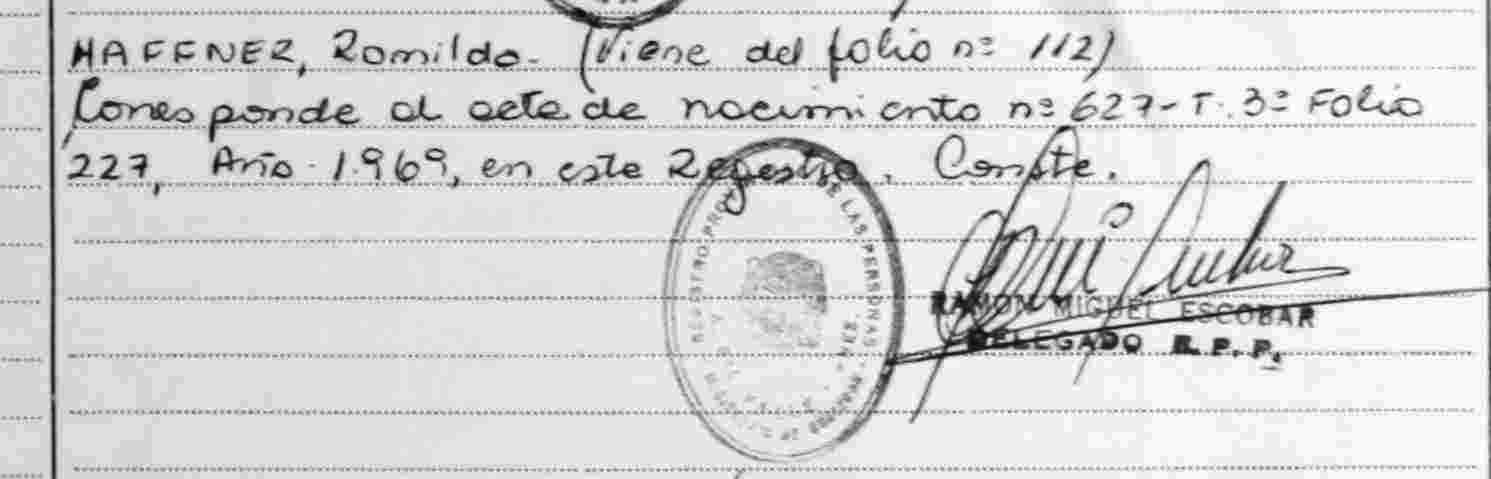 HAFFNER, Romildo. (Viene del folio nº 112)
Corresponde al acta de nacimiento nº 627-T. 3º Folio
227, Año 1.969, en este Registro. Conste.
DE LAS PERSONAS
RAMON MIGUEL ESCOBAR
DELEGADO R. P. P.